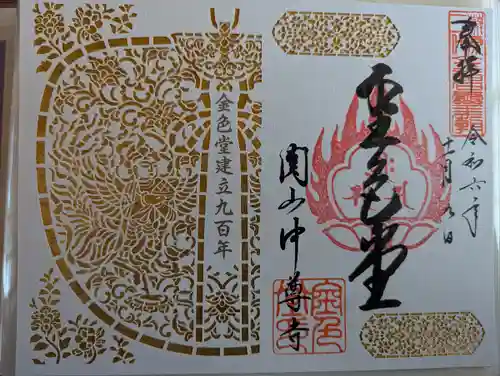 奉拝
令和六年
十一月 日
金色堂
関山中尊寺
金色堂建立九百年